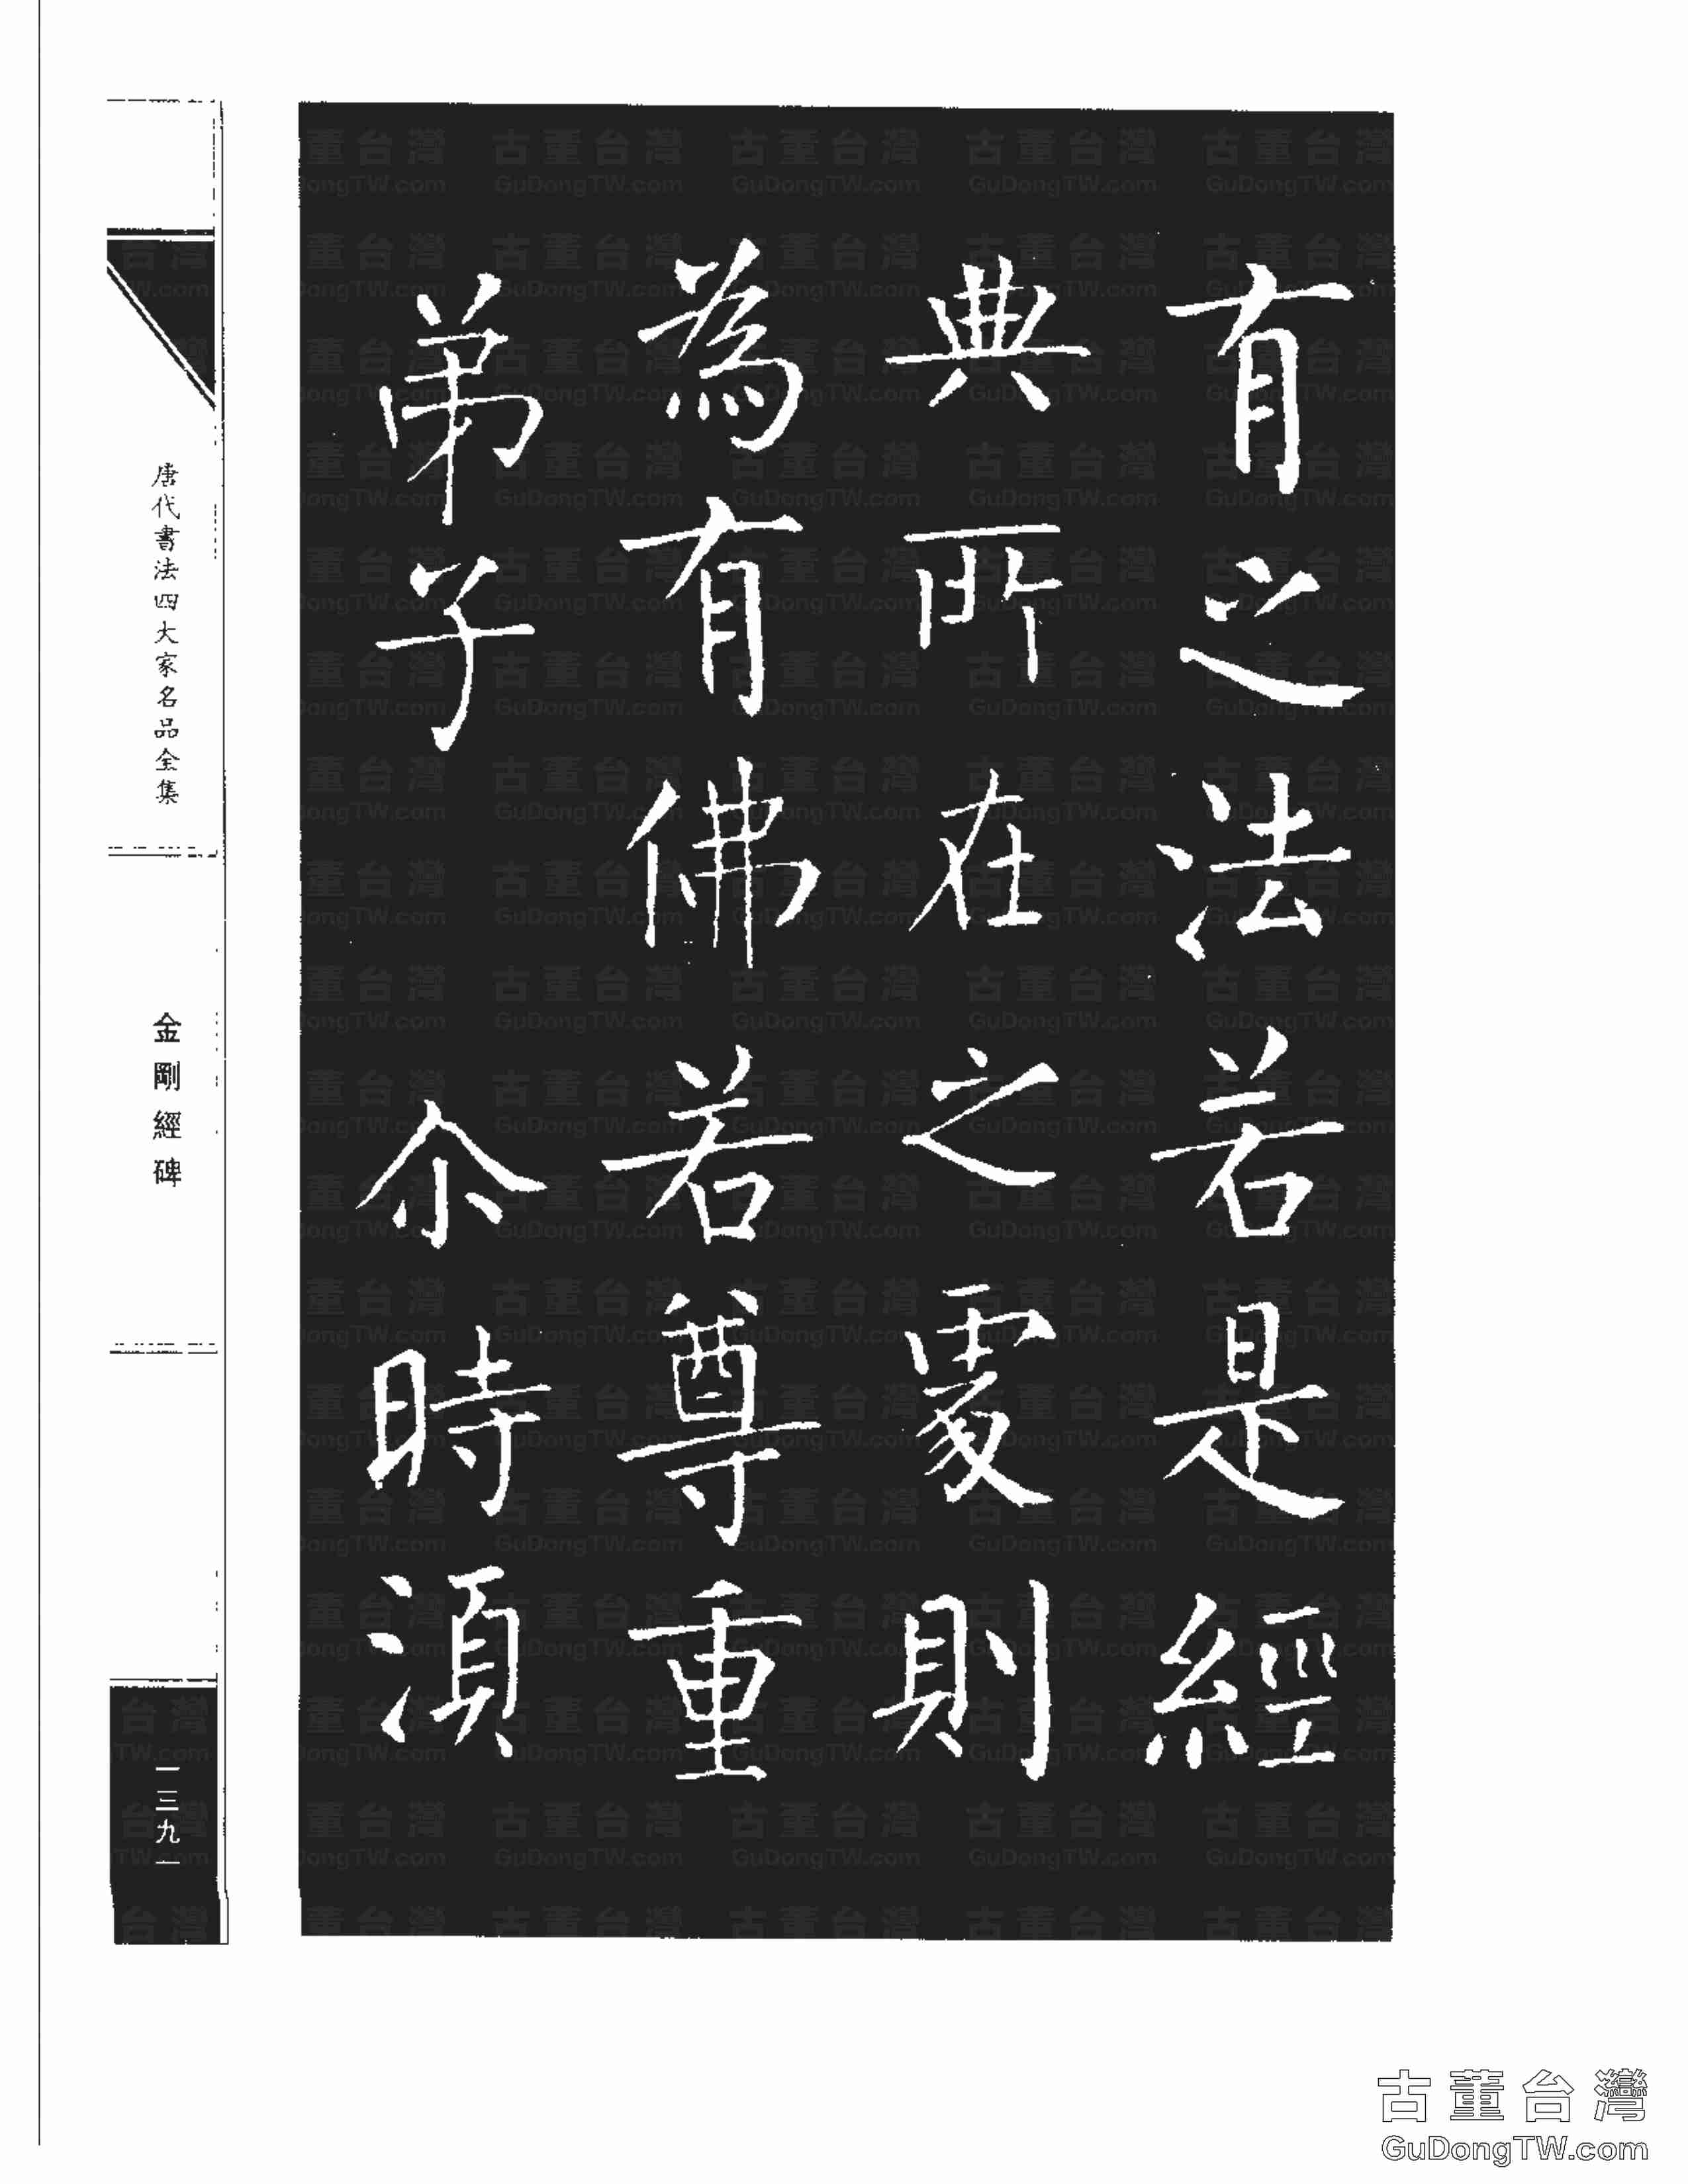 有之法若是經
典所在之處則
為有佛若尊重
弟子 尒時須
唐代書法四大家名品全集
金剛經碑
一三九一
古董台灣
GuDongTW.com